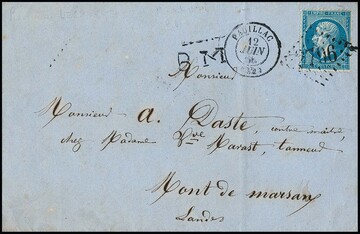 PAUILLAC
12
JUIN
B.M
Monsieur
Monsieur a. Daste, contre maître,
chez Madame Vve Marast, tanneur
Mont de marsan
Landes